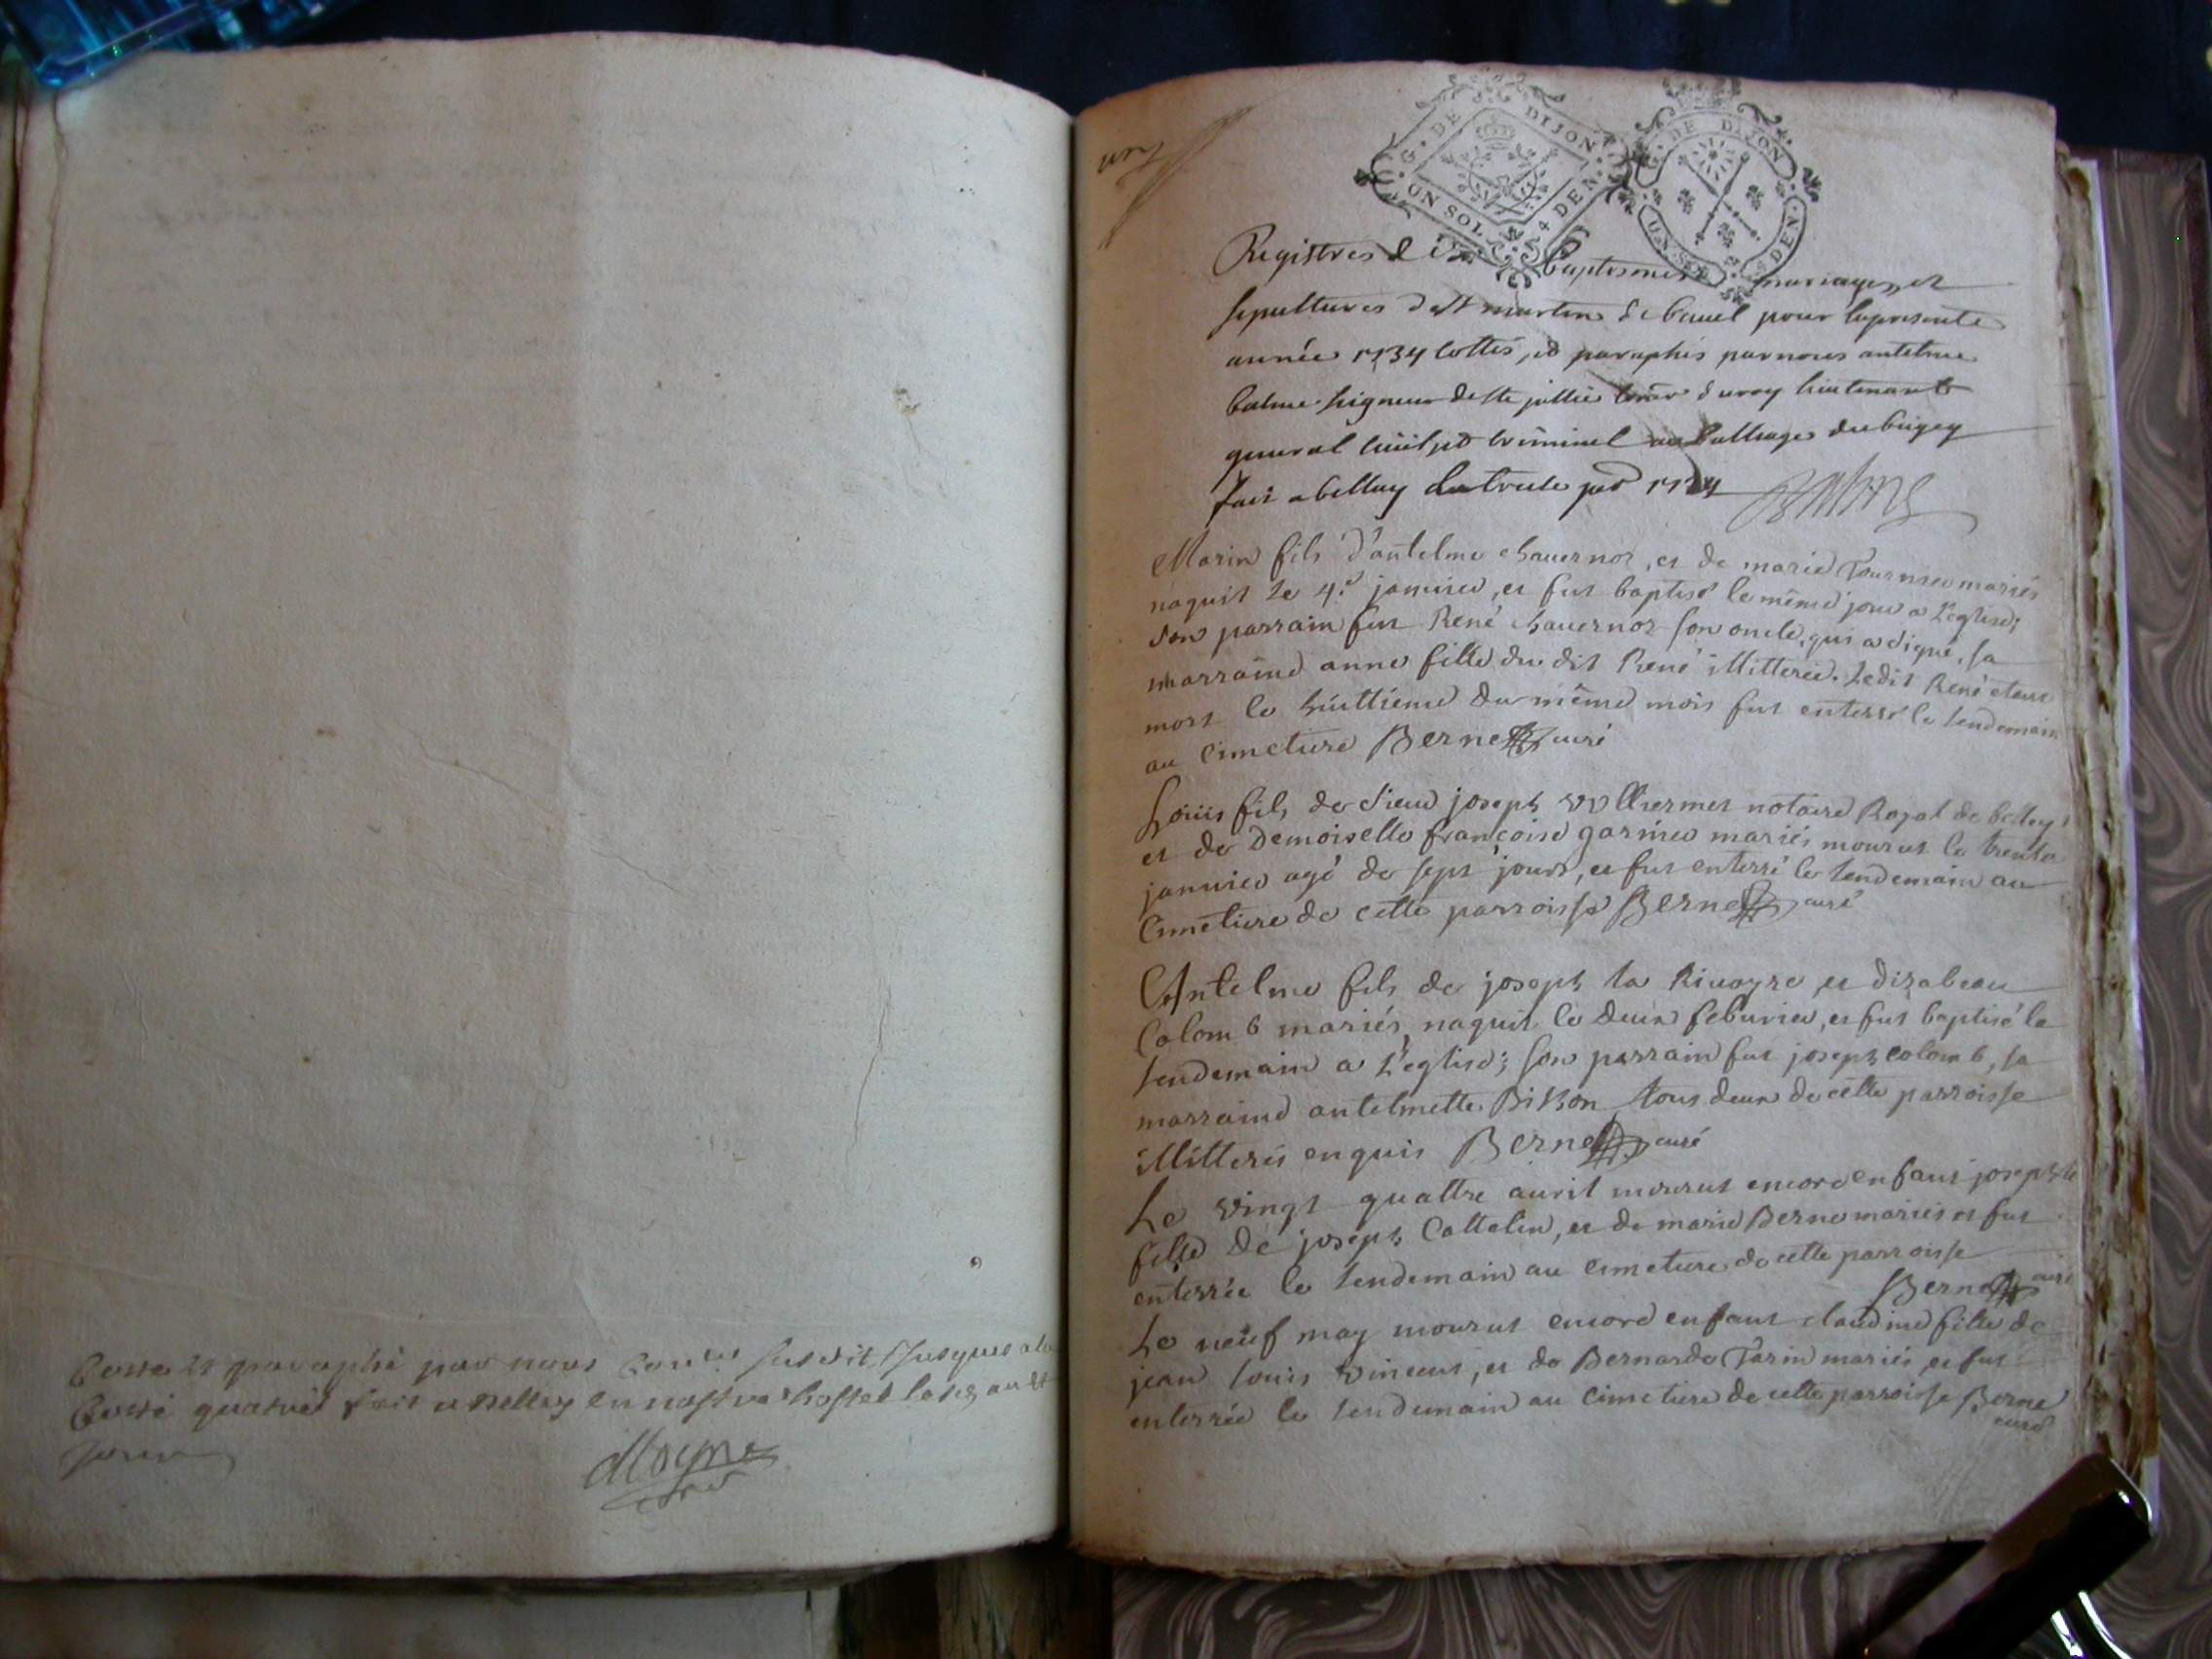 Cotté et paraphé par nous susdit Jusques a la
Cotte quatrē fait a Belley en nostre hostel
un
G. DE DIJON
UN SOL 4 DEN.
DE DIJON
UN SOL DEN.
Registres de baptismes mariages et
sepultures de st martin de bauel pour la presente
année 1734 cottés, et paraphés par nous antelme
balme seigneur de ste jullie du roy lieutenant
general ciuil et criminel au balliage du bugey
fait a belley le trente 1734 Balme
Marin fils d'antelme chauernoz, et de marie Tournier mariés
naquit le 4.e januier, et fut baptisé le même jour a L'eglise;
son parrain fut René chauernoz son oncle, qui a signé, sa
marraine anne fille du dit René illitterée. Ledit René etant
mort le huittieme du même mois fut enterré le lendemain
au cimetiere Berne curé
Loüis fils de sieur joseph vulliermet notaire Royal de belley,
et de Demoiselle françoise garnier mariés mourut le trente
januier agé de sept jours, et fut enterré le lendemain au
Cimetiere de cette parroisse Berne curé
Antelme fils de joseph la Riuoyre et dizabeau
Colomb mariés, naquit le deux feburier, et fut baptisé le
lendemain a L'eglise; son parrain fut joseph colomb, sa
marraine antelmette tous deux de cette parroisse
illitterés enquis Berne curé
Le vingt quattre auril mourut encore enfant josephte
fille de joseph Cattelin, et de marie Berne mariés et fut
enterrée le lendemain au cimetiere de cette parroisse
Berne curé
Le neuf may mourut encore enfant claudine fille de
jean louis vincent, et de Bernarde Tarin mariés, et fut
enterrée le lendemain au cimetiere de cette parroisse Berne
curé